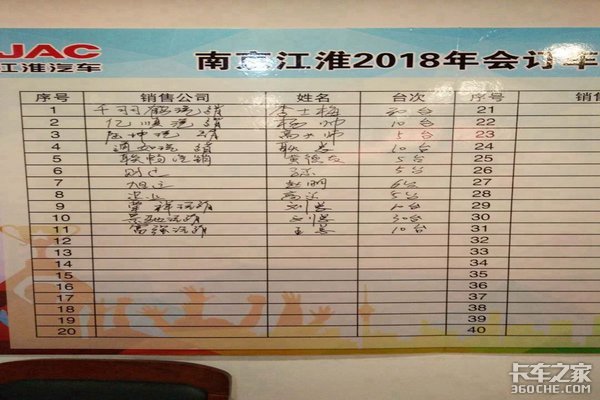 JAC
江淮汽车
南京江淮2018年会订车
序号 销售公司 姓名 台次 序号 销售
1 千羽鹤汽销 李士梅 台 21
2 亿顺汽销 杨帅 10台 22
3 汽销 高大帅 5台 23
4 汽销 10台 24
5 联畅汽销 黄德友 5台 25
6 5台 26
7 旭 明 6台 27
8 高 5台 28
9 祥汽销 刘 10台 29
10 驰汽销 刘 30台 30
11 富强汽销 王 10台 31
12 32
13 33
14 34
15 35
16 36
17 37
18 38
19 39
20 40
卡车之家
360che.com